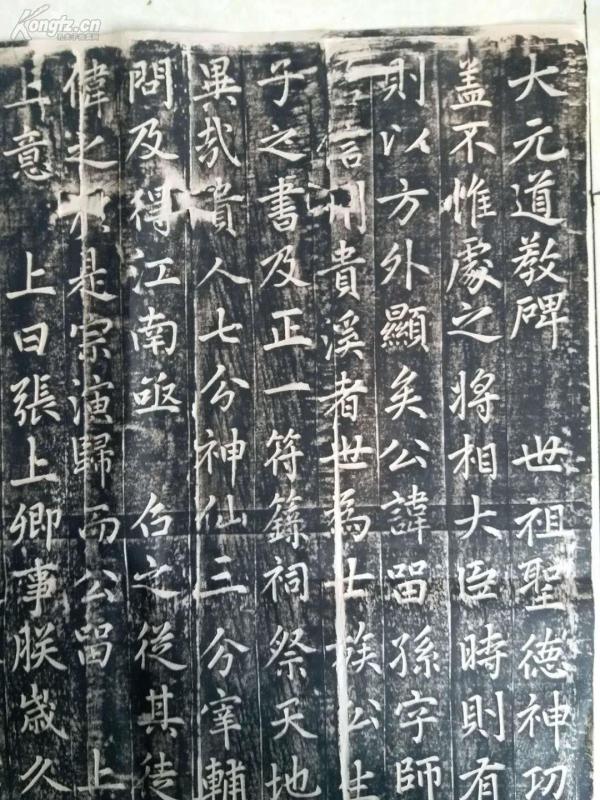 Kongfz.cn
大元道教碑 世祖聖德神功
盖不惟處之將相大臣時則有
則以方外顯矣公諱畱孫字師
信州貴溪者世為士族公生
子之書及正一符籙祠祭天地
異㢤貴人七分神仙三分宰輔
問及得江南亟 召之從其徒
偉之於是宗演歸而公畱 上
上意 上曰張上卿事朕嵗久